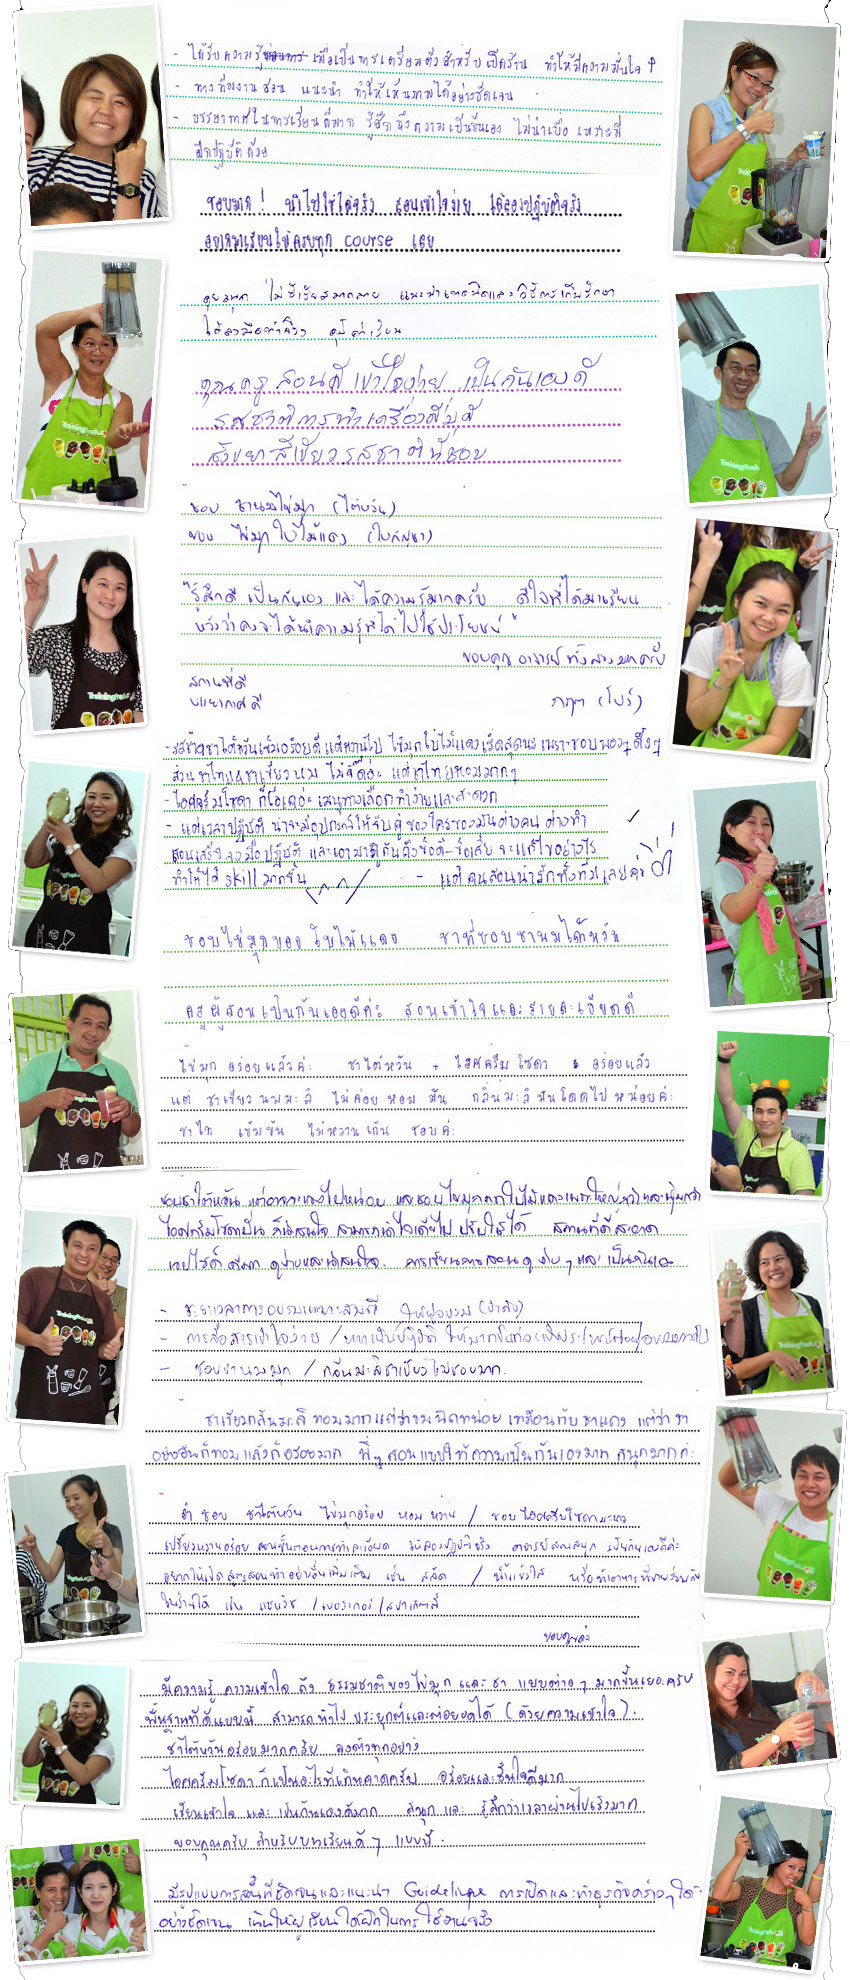 - ได้รับความรู้ เพื่อเป็นการเตรียมตัวสำหรับเปิดร้าน ทำให้มีความมั่นใจ ↑
- ทางทีมงานสอน แนะนำ ทำให้เห็นภาพได้อย่างชัดเจน
- บรรยากาศในการเรียนดีมาก รู้สึกถึงความเป็นกันเอง ไม่น่าเบื่อ เพราะมี
ฝึกปฏิบัติด้วย
ชอบมาก! นำไปใช้ได้จริง สอนเข้าใจง่าย ได้ลองปฏิบัติจริง
อยากมาเรียนให้ครบทุก course เลย
แนะนำเทคนิคและวิธีการเก็บรักษา
ได้ลงมือทำจริง คุ้มค่าเรียน
คุณครูสอนดี เข้าใจง่าย เป็นกันเองดี
รสชาติการทำเครื่องดื่มดี
สังขยาสีเขียวรสชาติน่าชอบ
ชอบ ชานมไข่มุก (ไต้หวัน)
ชอบ ไข่มุก ใบไม้แดง
รู้สึกดี เป็นกันเอง และได้ความรู้มากครับ ดีใจที่ได้มาเรียน
หวังว่าคงจะได้นำความรู้ที่ได้ไปใช้ประโยชน์
ขอบคุณ อาจารย์ทั้งสองมากครับ
สถานที่ดี
บรรยากาศดี
- รสชาติชาไต้หวันเข้มอร่อยดี แต่หวานไป ไข่มุกใบไม้แดงเริ่ดสุดนะ เพราะชอบของๆ ดึ๋งๆ
ส่วนชาไทย ชาเขียวนม ไม่จี๊ดอ่ะ แต่ชาไทยหอมมากๆ
- ไอศครีมโซดา ก็โอเคอ่ะ เมนูทางเลือก ทำง่ายและสะดวก
- แต่เวลาปฏิบัติ น่าจะมีอุปกรณ์ให้จับคู่ของใครของมัน ต่างคน ต่างทำ
สอนเสร็จ ลงมือปฏิบัติ และเอามาดูกันถึงข้อดี-ข้อเสีย จะแก้ไขอย่างไร
ทำให้ได้ skill มากขึ้น - แต่คนสอนน่ารักทั้งทีมเลยค่ะ
ชอบไข่มุกของใบไม้แดง ชาที่ชอบชานมไต้หวัน
ครูผู้สอนเป็นกันเองดีค่ะ สอนเข้าใจและรายละเอียดดี
ไข่มุก อร่อยแล้วค่ะ ชาไต้หวัน + ไอศครีมโซดา อร่อยแล้ว
แต่ ชาเขียวนมมะลิ ไม่ค่อยหอม มัน กลิ่นมะลิมันโดดไปหน่อยค่ะ
ชาไทย เข้มข้น ไม่หวานเกิน ชอบค่ะ
ชอบชาไต้หวัน แต่อาจจะ ไปหน่อย และชอบไข่มุกใบไม้แดงเพราะใหญ่กว่าและนุ่มกว่า
ไอศครีมโซดาปั่น ก็น่าสนใจ สามารถนำไอเดียไปปรับใช้ได้ สถานที่ดี สะอาด
เว็บไซต์ ดูง่ายและน่าสนใจ การเรียนการสอนดูง่ายๆ และเป็นกันเอง
- ระยะเวลาการอบรมเหมาะสมดี
- การสื่อสารเข้าใจง่าย
- ชอบชานมมุก / กลิ่นมะลิชาเขียวไม่ชอบมาก
ชาเขียวกลิ่นมะลิ หอมมากแต่ว่าขมนิดหน่อย เหมือนกับ ชาแดง แต่ว่า ชา
อย่างอื่นก็หอมแล้วก็อร่อยมาก พี่ๆ สอนแบบให้ความเป็นกันเองมาก สนุกมากค่ะ
ชอบ ชาไต้หวัน ไข่มุกอร่อย หอม หวาน / ชอบไอศครีมโซดามะนาว
เปรี้ยวหวานอร่อย สอนขั้นตอนการทำละเอียด ได้ลองปฏิบัติจริง อาจารย์สอนสนุก เป็นกันเองดีค่ะ
อยากให้เปิดสูตรสอนทำอย่างอื่นเพิ่มเติม เช่น สลัด / น้ำแข็งไส หรือทำอาหารที่ขายร่วมกัน
ในร้านได้ เช่น แซนวิช / เบอร์เกอร์ / สปาเก็ตตี้
ขอบคุณค่ะ
มีความรู้ ความเข้าใจ ถึง ธรรมชาติของไข่มุก และ ชา แบบต่างๆ มากขึ้นเยอะครับ
พื้นฐานที่ดีแบบนี้ สามารถนำไป ประยุกต์และต่อยอดได้ (ด้วยความเข้าใจ).
ชาไต้หวันอร่อยมากครับ ลงตัวทุกอย่าง
ไอศครีมโซดา ก็เป็นอะไรที่เกินคาดครับ อร่อยและชื่นใจดีมาก
เรียนเข้าใจ และ เป็นกันเองดีมาก สนุก และ รู้สึกว่าเวลาผ่านไปเร็วมาก
ขอบคุณครับ สำหรับบทเรียนดีๆ แบบนี้.
มีรูปแบบการสอนที่ชัดเจนและแนะนำ Guideline การเปิดและทำธุรกิจคร่าวๆ ได้
อย่างชัดเจน เน้นให้ผู้เรียนได้ฝึกในการใช้งานจริง